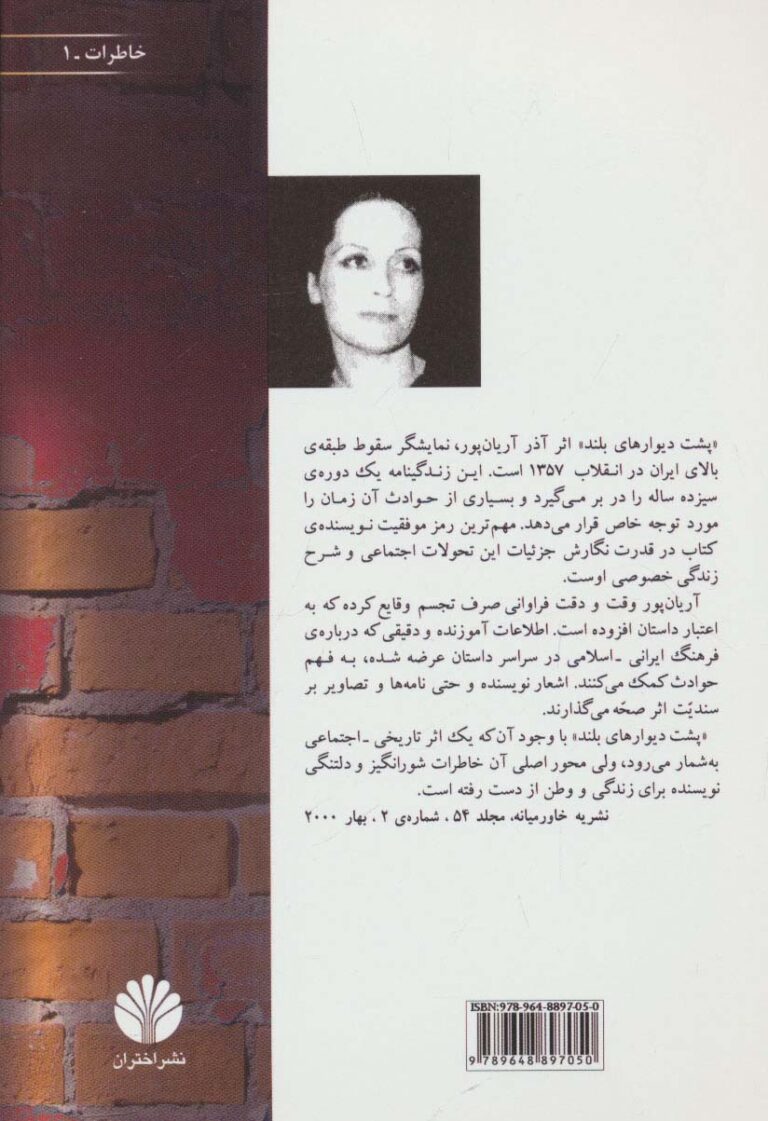 خاطرات ـ ۱
«پشت دیوارهای بلند» اثر آذر آریان‌پور، نمایشگر سقوط طبقه‌ی
بالای ایران در انقلاب ۱۳۵۷ است. این زندگینامه یک دوره‌ی
سیزده ساله را در بر می‌گیرد و بسیاری از حوادث آن زمان را
مورد توجه خاص قرار می‌دهد. مهم‌ترین رمز موفقیت نویسنده‌ی
کتاب در قدرت نگارش جزئیات این تحولات اجتماعی و شرح
زندگی خصوصی اوست.
آریان‌پور وقت و دقت فراوانی صرف تجسم وقایع کرده که به
اعتبار داستان افزوده است. اطلاعات آموزنده و دقیقی که درباره‌ی
فرهنگ ایرانی ـ اسلامی در سراسر داستان عرضه شده، به فهم
حوادث کمک می‌کنند. اشعار نویسنده و حتی نامه‌ها و تصاویر بر
سندیّت اثر صحّه می‌گذارند.
«پشت دیوارهای بلند» با وجود آن‌که یک اثر تاریخی ـ اجتماعی
به‌شمار می‌رود، ولی محور اصلی آن خاطرات شورانگیز و دلتنگی
نویسنده برای زندگی و وطن از دست رفته است.
نشریه خاورمیانه، مجلد ۵۴، شماره‌ی ۲، بهار ۲۰۰۰
ISBN:978-964-8897-05-0
9 789648 897050
نشر اختران